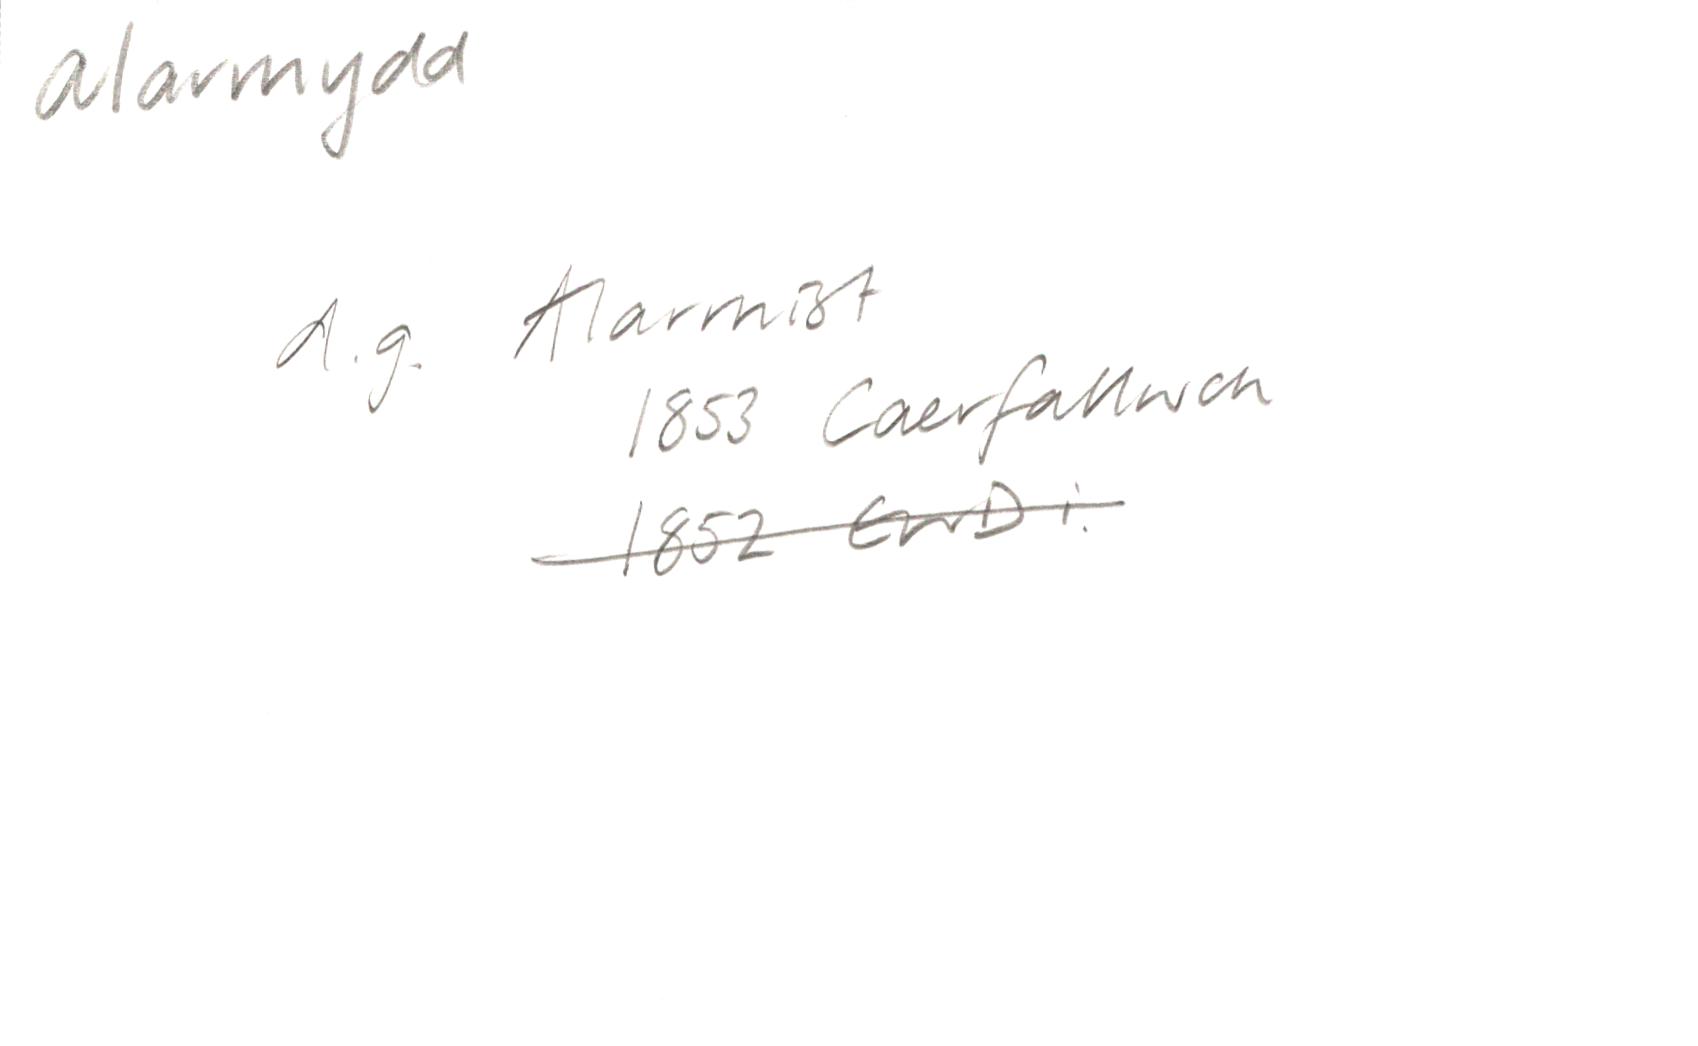 alarmydd
d.g. Alarmist
1853 Caerfallwch
1852 GwD i.